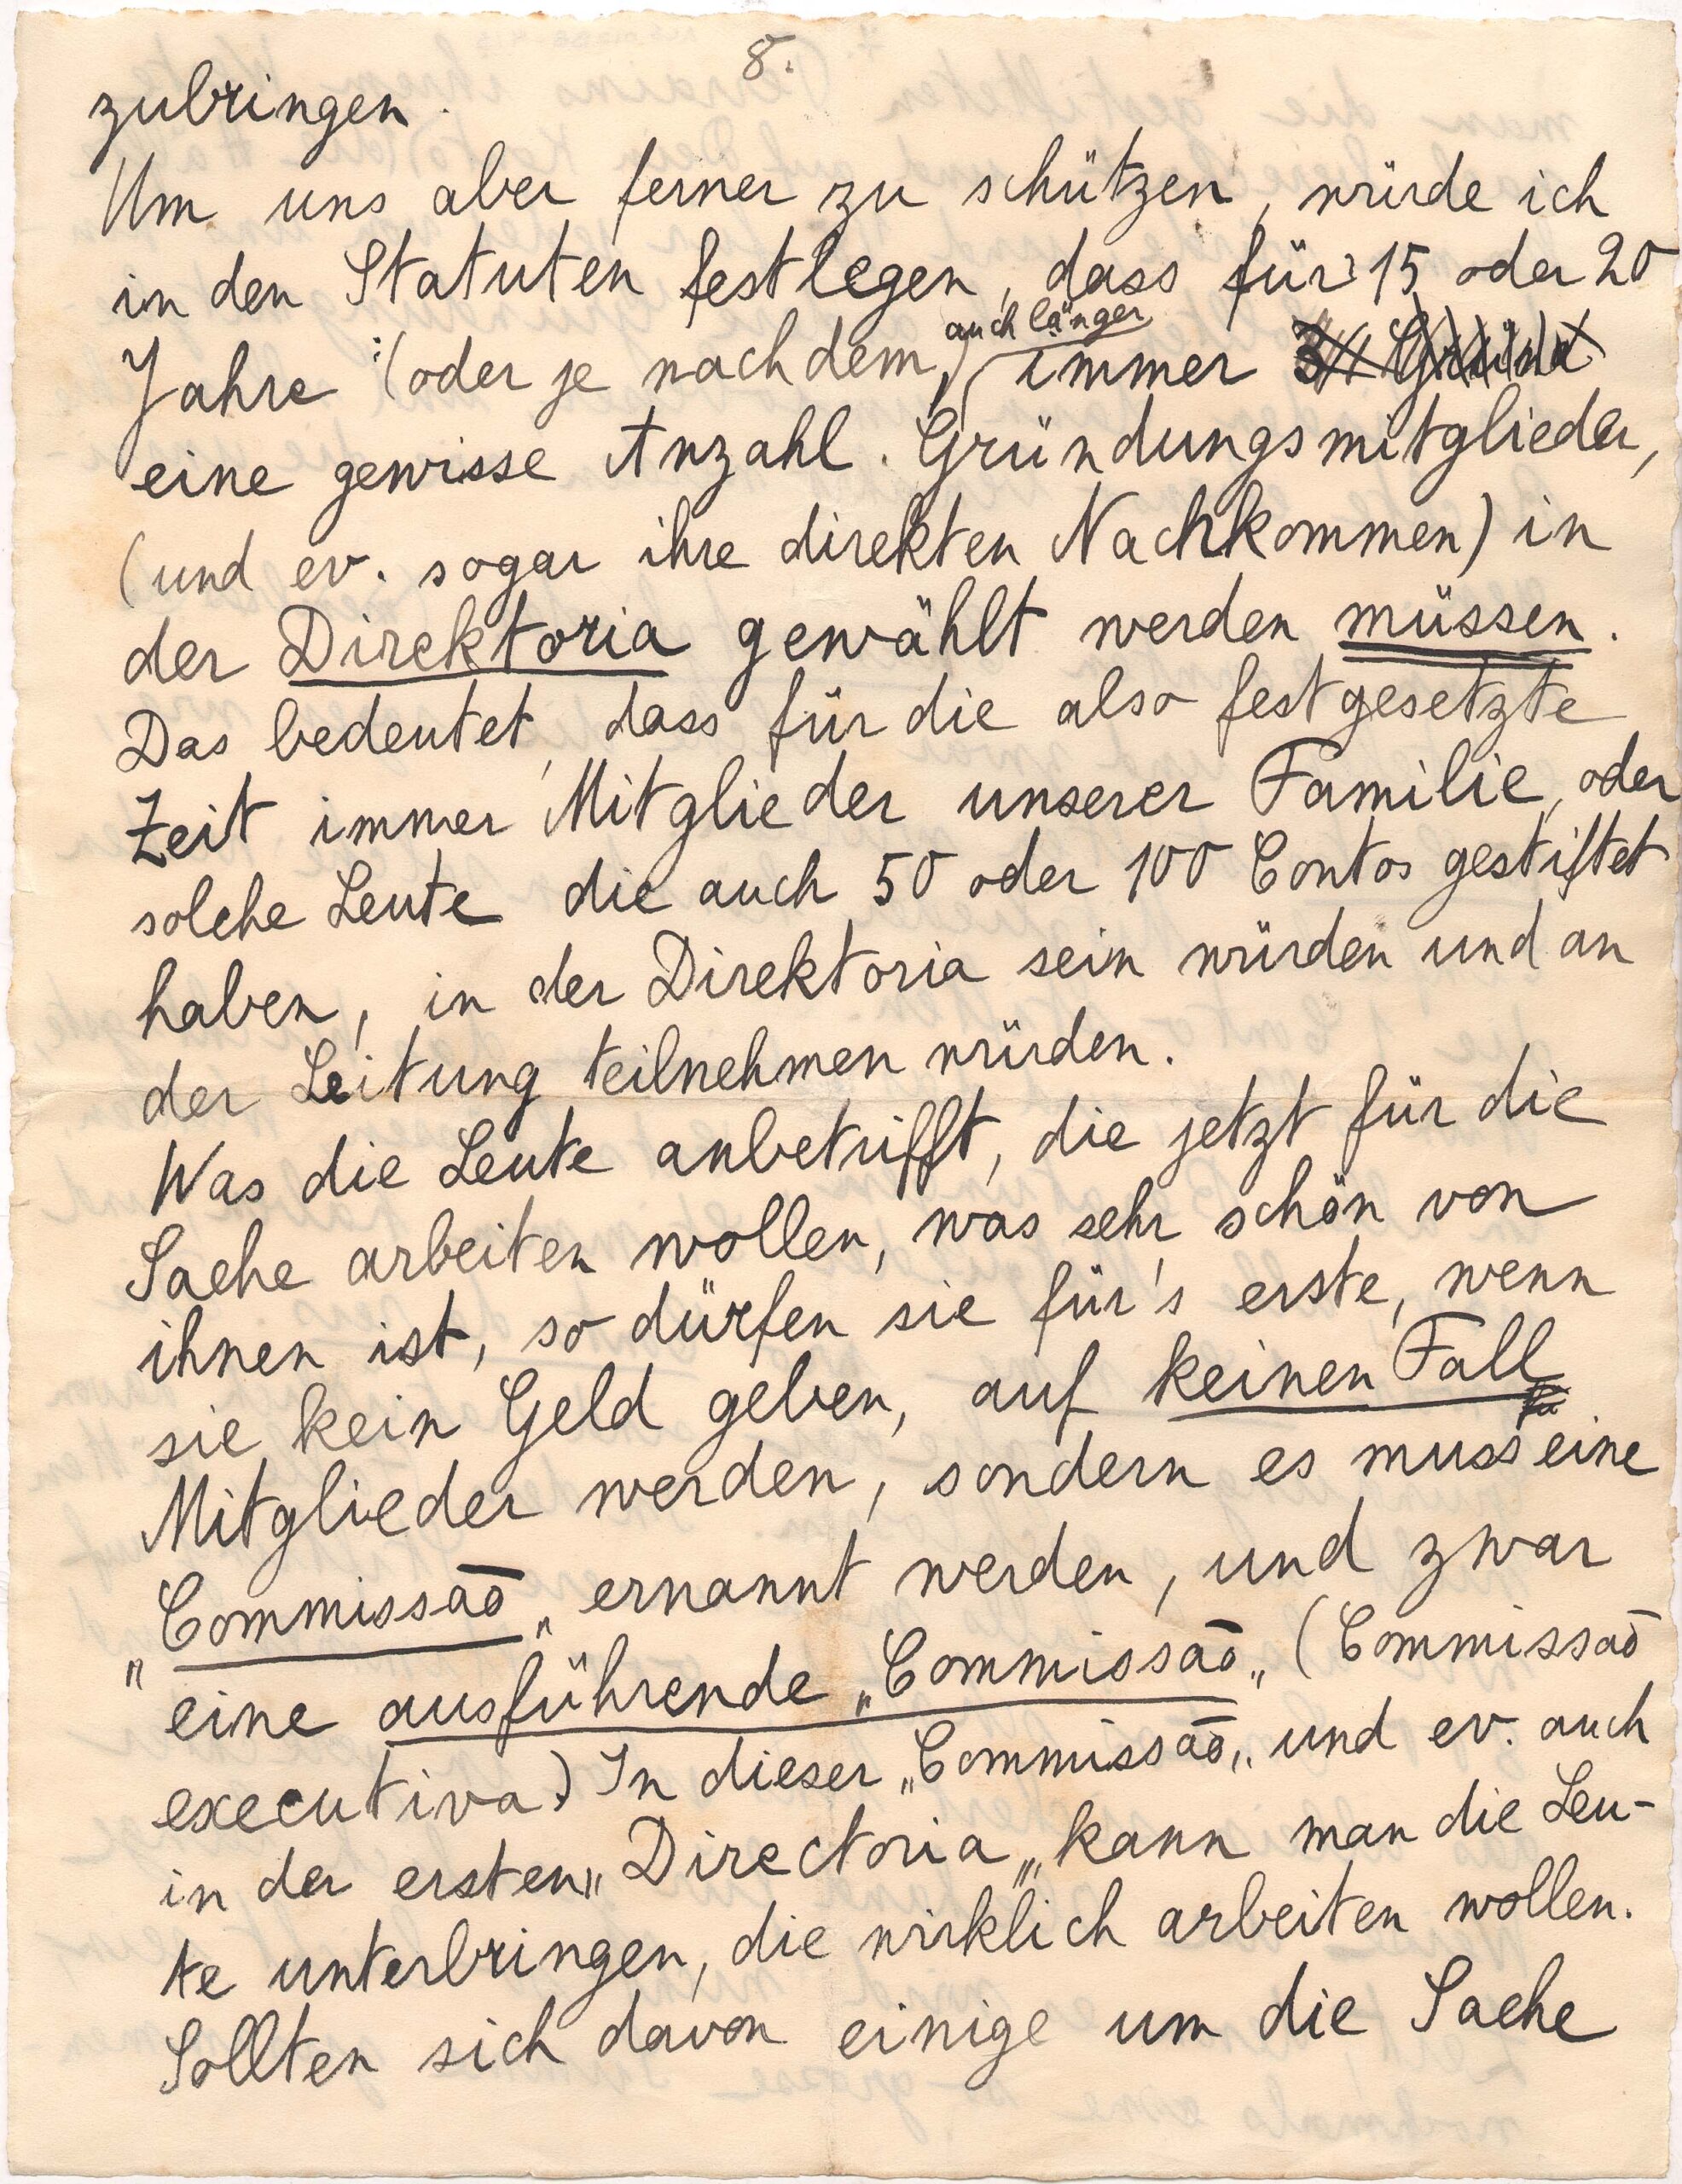 8.
zubringen.
Um uns aber ferner zu schützen, würde ich
in den Statuten festlegen, dass für 15 oder 20
Jahre (oder je nachdem auch länger) immer
eine gewisse Anzahl Gründungsmitglieder,
(und ev. sogar ihre direkten Nachkommen) in
der Direktoria gewählt werden müssen.
Das bedeutet, dass für die also festgesetzte
Zeit immer Mitglieder unserer Familie, oder
solche Leute die auch 50 oder 100 Contos gestiftet
haben, in der Direktoria sein würden und an
der Leitung teilnehmen würden.
Was die Leute anbetrifft, die jetzt für die
Sache arbeiten wollen, was sehr schön von
ihnen ist, so dürfen sie für's erste, wenn
sie kein Geld geben, auf keinen Fall
Mitglieder werden, sondern es muss eine
„Commissão„ ernannt werden, und zwar
eine ausführende „Commissão„ (Commissão
executiva) In dieser „Commissão„ und ev. auch
in der ersten „Directoria„ kann man die Leu-
te unterbringen, die wirklich arbeiten wollen.
Sollten sich davon einige um die Sache